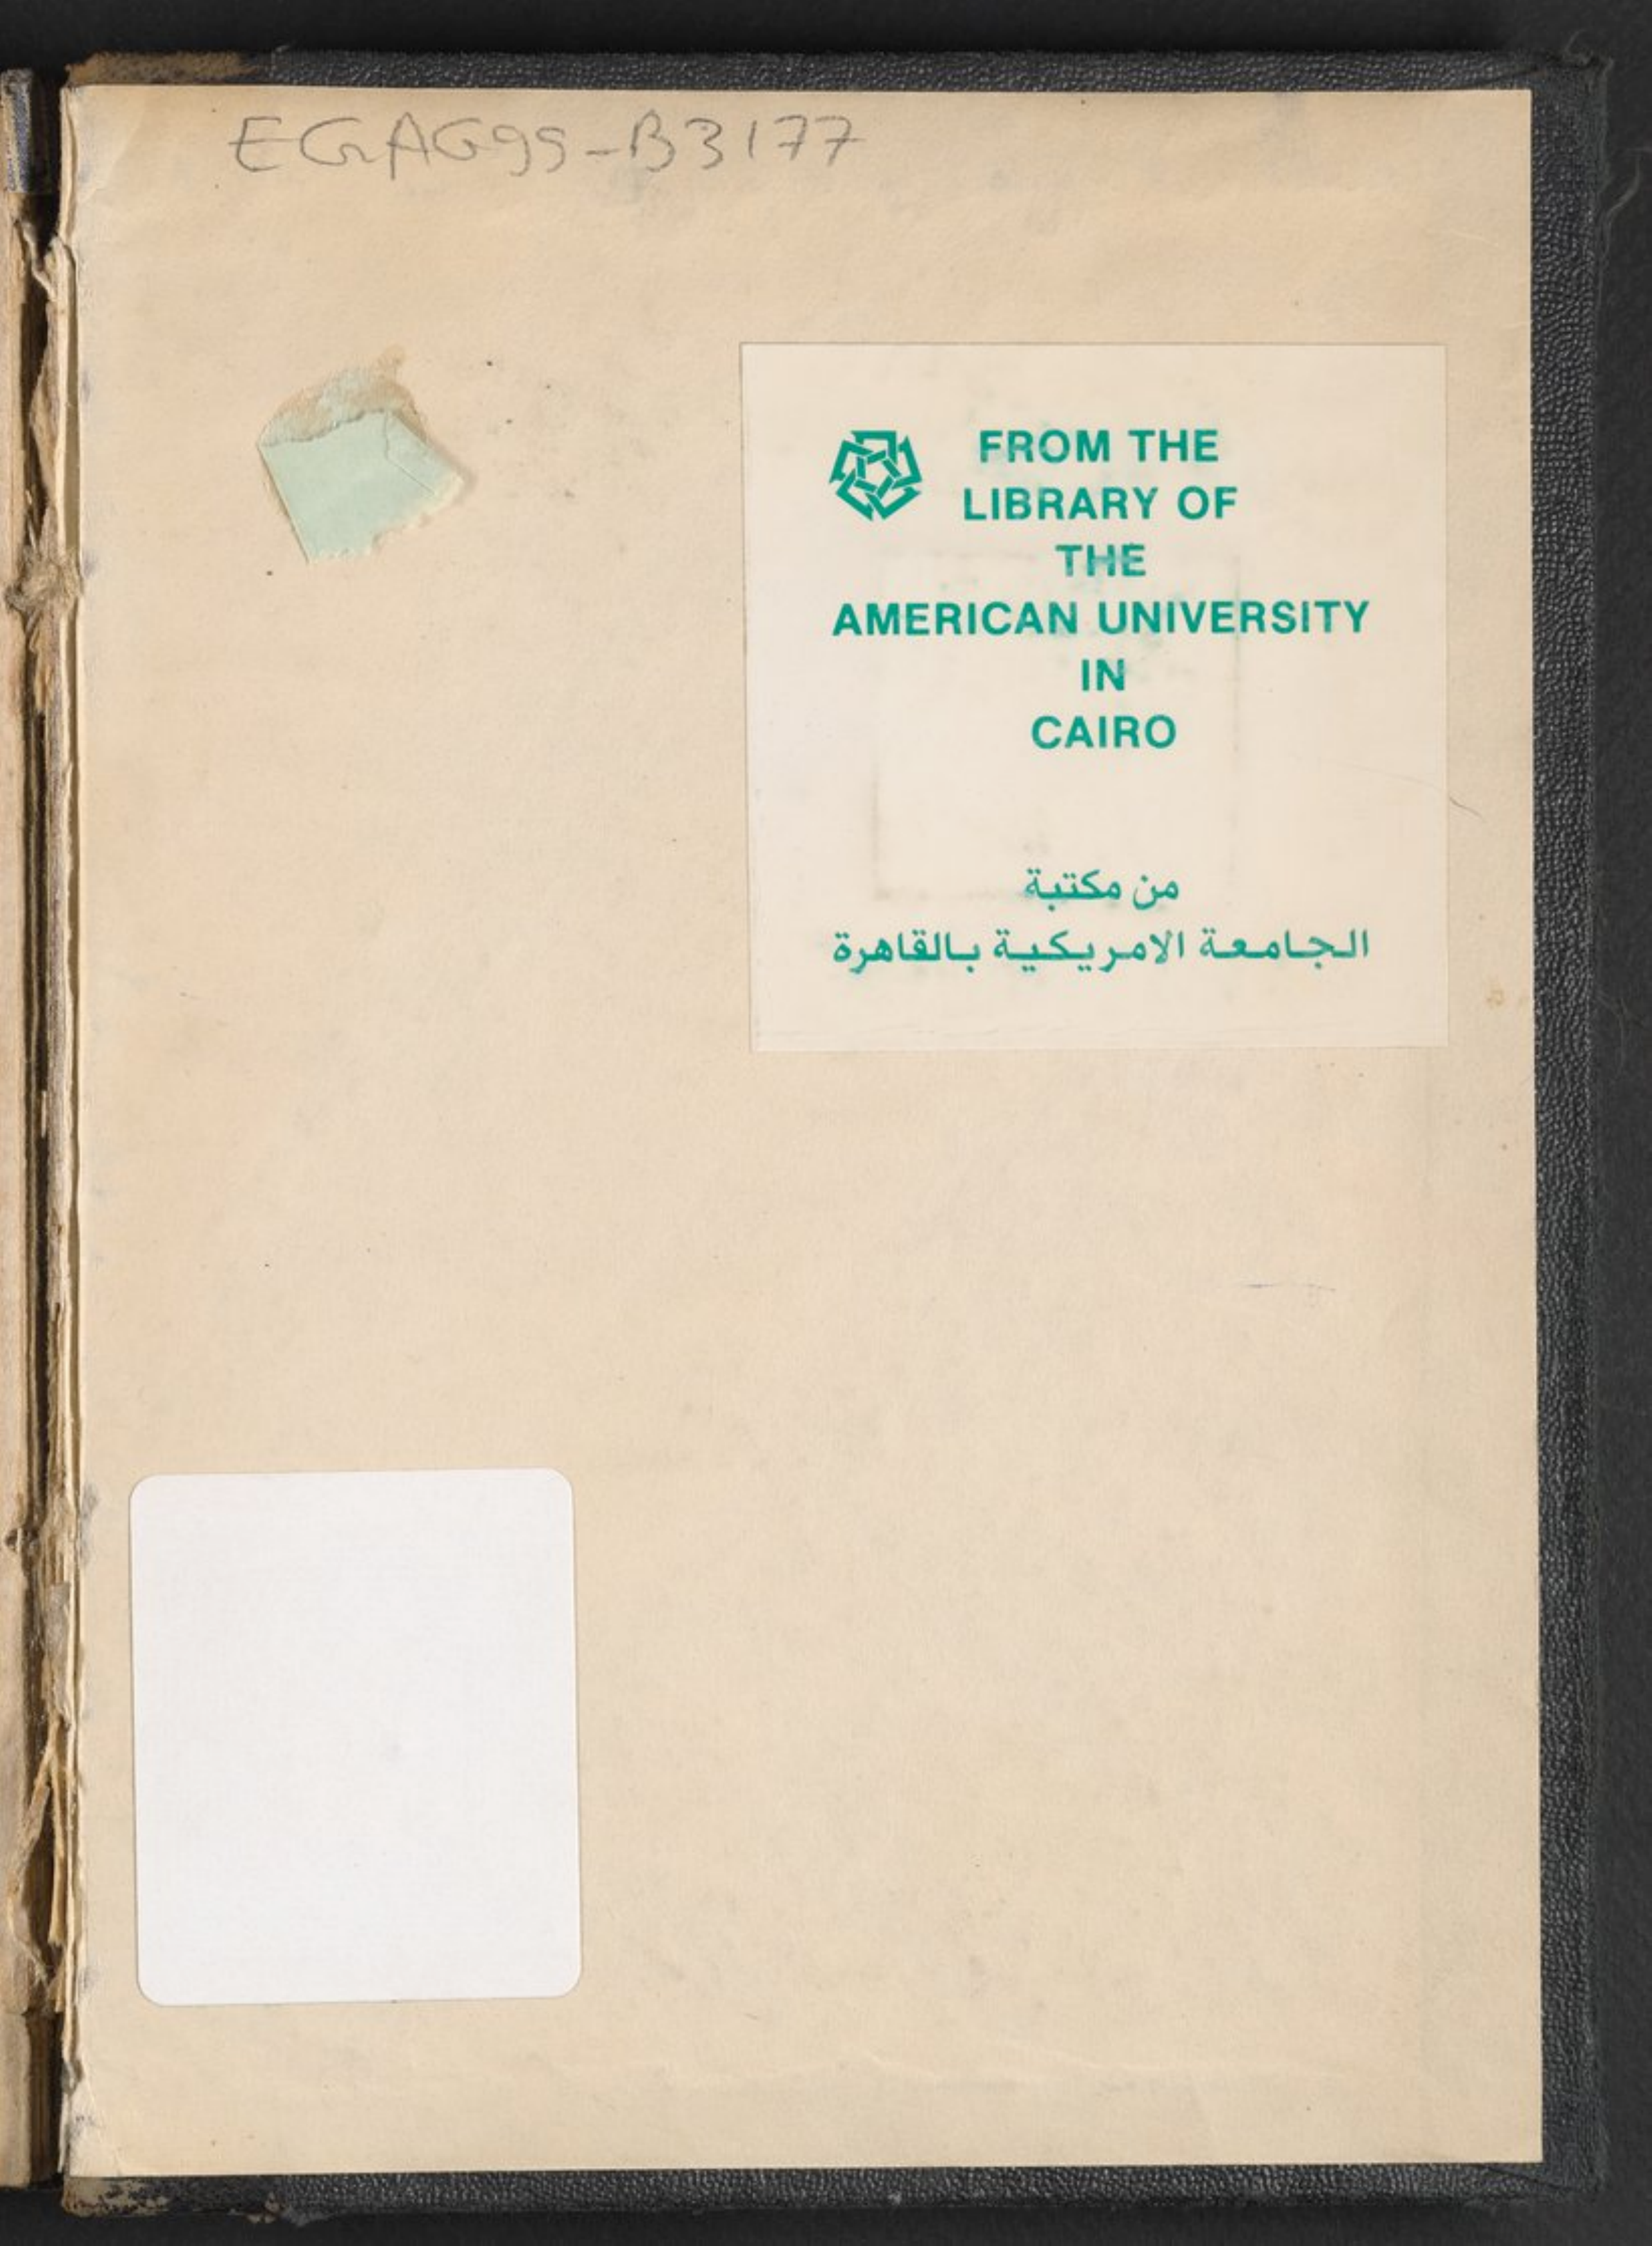 EGAG99-B3177
FROM THE
LIBRARY OF
THE
AMERICAN UNIVERSITY
IN
CAIRO
من مكتبة
الجامعة الامريكية بالقاهرة